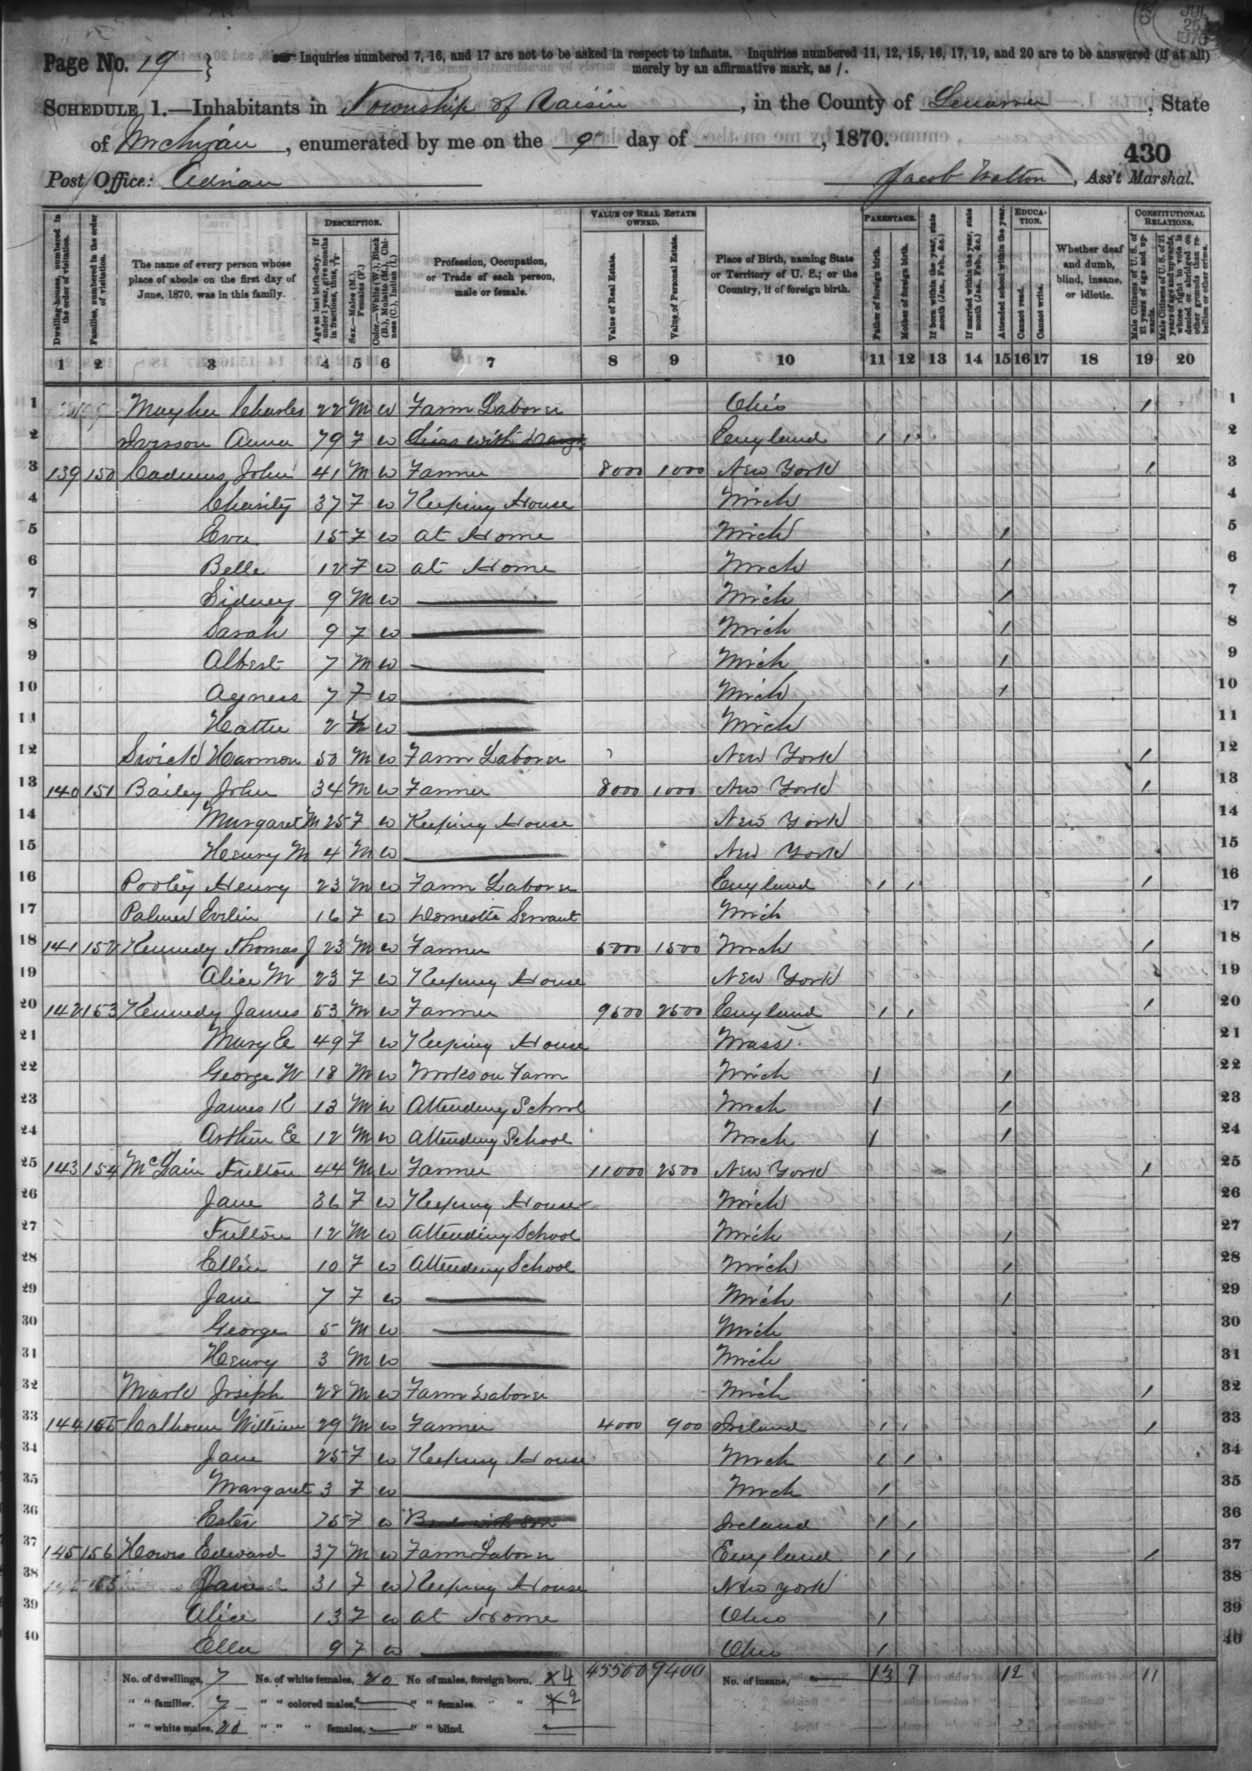 JUL 25 1870
Page No. 19 } Inquiries numbered 7, 16, and 17 are not to be asked in respect to infants. Inquiries numbered 11, 12, 15, 16, 17, 19, and 20 are to be answered (if at all)
merely by an affirmative mark, as /.
SCHEDULE 1.—Inhabitants in Township of Raisin, in the County of Lenawee, State
of Michigan, enumerated by me on the 9 day of , 1870.
430
Post Office: Adrian Jacob Walton, Ass't Marshal.
Dwelling-houses, numbered in the order of visitation.
Families, numbered in the order of visitation.
The name of every person whose place of abode on the first day of June, 1870, was in this family.
DESCRIPTION.
Age at last birth-day. If under 1 year, give months in fractions, thus, 3/12
Sex.—Males (M.), Females (F.)
Color.—White (W.), Black (B.), Mulatto (M.), Chinese (C.), Indian (I.)
Profession, Occupation, or Trade of each person, male or female.
VALUE OF REAL ESTATE OWNED.
Value of Real Estate.
Value of Personal Estate.
Place of Birth, naming State or Territory of U. S.; or the Country, if of foreign birth.
PARENTAGE.
Father of foreign birth.
Mother of foreign birth.
If born within the year, state month (Jan., Feb., &c.)
If married within the year, state month (Jan., Feb., &c.)
Attended school within the year.
EDUCATION.
Cannot read.
Cannot write.
Whether deaf and dumb, blind, insane, or idiotic.
CONSTITUTIONAL RELATIONS.
Male Citizens of U. S. of 21 years of age and upwards.
Male Citizens of U. S. of 21 years of age and upwards, whose right to vote is denied or abridged on other grounds than rebellion or other crime.
1 2 3 4 5 6 7 8 9 10 11 12 13 14 15 16 17 18 19 20
1 Charles 22 M W Farm Laborer Ohio / 1
2 Anna 79 F W England / / 2
3 139 150 Cadmus John 41 M W Farmer 8000 1000 New York / 3
4 Charity 37 F W Keeping House Mich 4
5 Eva 15 F W at Home Mich / 5
6 Belle 12 F W at Home Mich / 6
7 Sidney 9 M W Mich / 7
8 Sarah 9 F W Mich / 8
9 Albert 7 M W Mich / 9
10 Agness 7 F W Mich / 10
11 Hattie 2 W Mich 11
12 Swick Harmon 50 M W Farm Laborer New York / 12
13 140 151 Bailey John 34 M W Farmer 8000 1000 New York / 13
14 Margaret M 25 F W Keeping House New York 14
15 Henry M 4 M W New York 15
16 Pooley Henry 23 M W Farm Laborer England / / / 16
17 Palmer Evelin 16 F W Domestic Servant Mich 17
18 141 152 Kennedy Thomas J 23 M W Farmer 5000 1500 Mich / 18
19 Alice M 23 F W Keeping House New York 19
20 142 153 Kennedy James 53 M W Farmer 9500 2500 England / / / 20
21 Mary E 49 F W Keeping House Mass. 21
22 George W 18 M W Works on Farm Mich / / 22
23 James K 13 M W Attending School Mich / / 23
24 Arthur E 12 M W Attending School Mich / / 24
25 143 154 Fulton 44 M W Farmer 11000 2500 New York / 25
26 Jane 36 F W Keeping House Mich 26
27 Fulton 12 M W Attending School Mich / 27
28 Ellen 10 F W Attending School Mich / 28
29 Jane 7 F W Mich / 29
30 George 5 M W Mich 30
31 Henry 3 M W Mich 31
32 Mark Joseph 28 M W Farm Laborer Mich / 32
33 144 155 Calhoun William 29 M W Farmer 4000 900 Ireland / / / 33
34 Jane 25 F W Keeping House Mich / / 34
35 Margaret 3 F W Mich / 35
36 Ester 75 F W Ireland / / 36
37 145 156 Edward 37 M W Farm Laborer England / / / 37
38 Jane 31 F W Keeping House New York 38
39 Alice 13 F W at Home Ohio / 39
40 Ella 9 F W Ohio / 40
No. of dwellings, 7 No. of white females, 20 No. of males, foreign born, 4 45500 9400 No. of insane, 13 7 12 11
" " families, 7 " " colored males, " " females, " " 2
" " white males, 20 " " " females, " " blind.